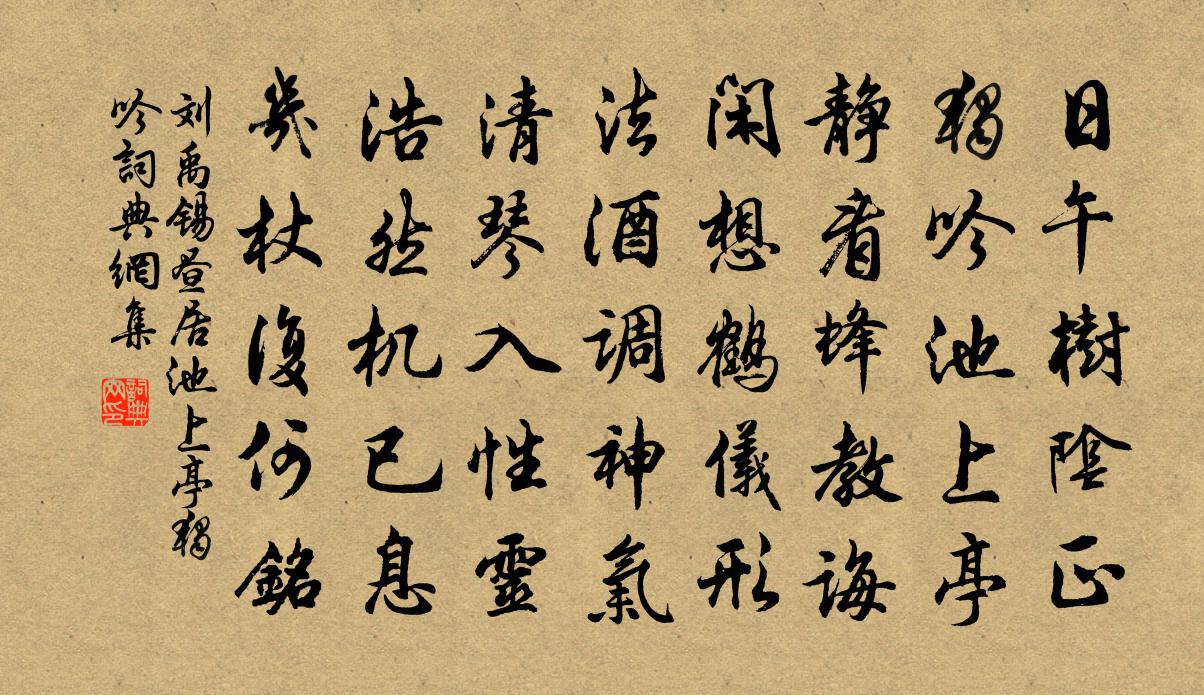 日午樹陰正
獨吟池上亭
静看蜂教誨
閑想鶴儀形
法酒調神氣
清琴入性靈
浩然机已息
幾杖復何銘
刘禹锡昼居池上亭獨
吟詞典網集
詞典
网印